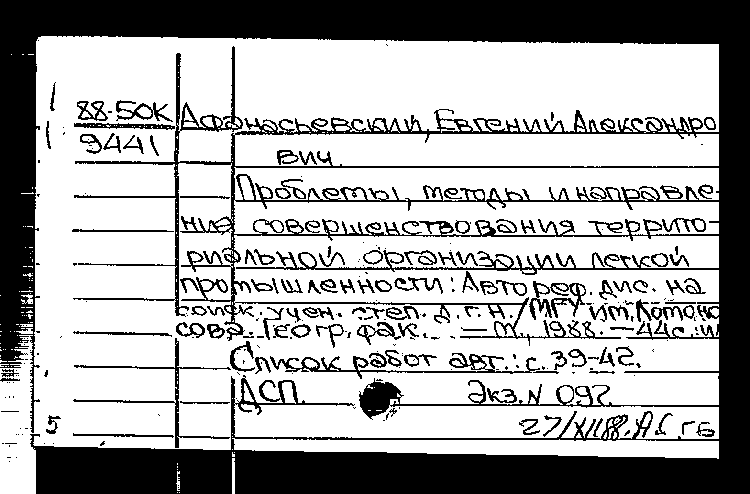 88-50К Афанасьевский, Евгений Александро
9441 вич.
Проблемы, методы и направле-
ния совершенствования террито-
риальной организации легкой
промышленности: Автореф. дис. на
соиск. учен. степ. д.г.н./МГУ им. Ломоно
сова. Геогр. фак. — М., 1988. — 44с.: ил
Список работ авт.: с. 39-42.
ДСП. Экз. N 092
5 27/XII88.